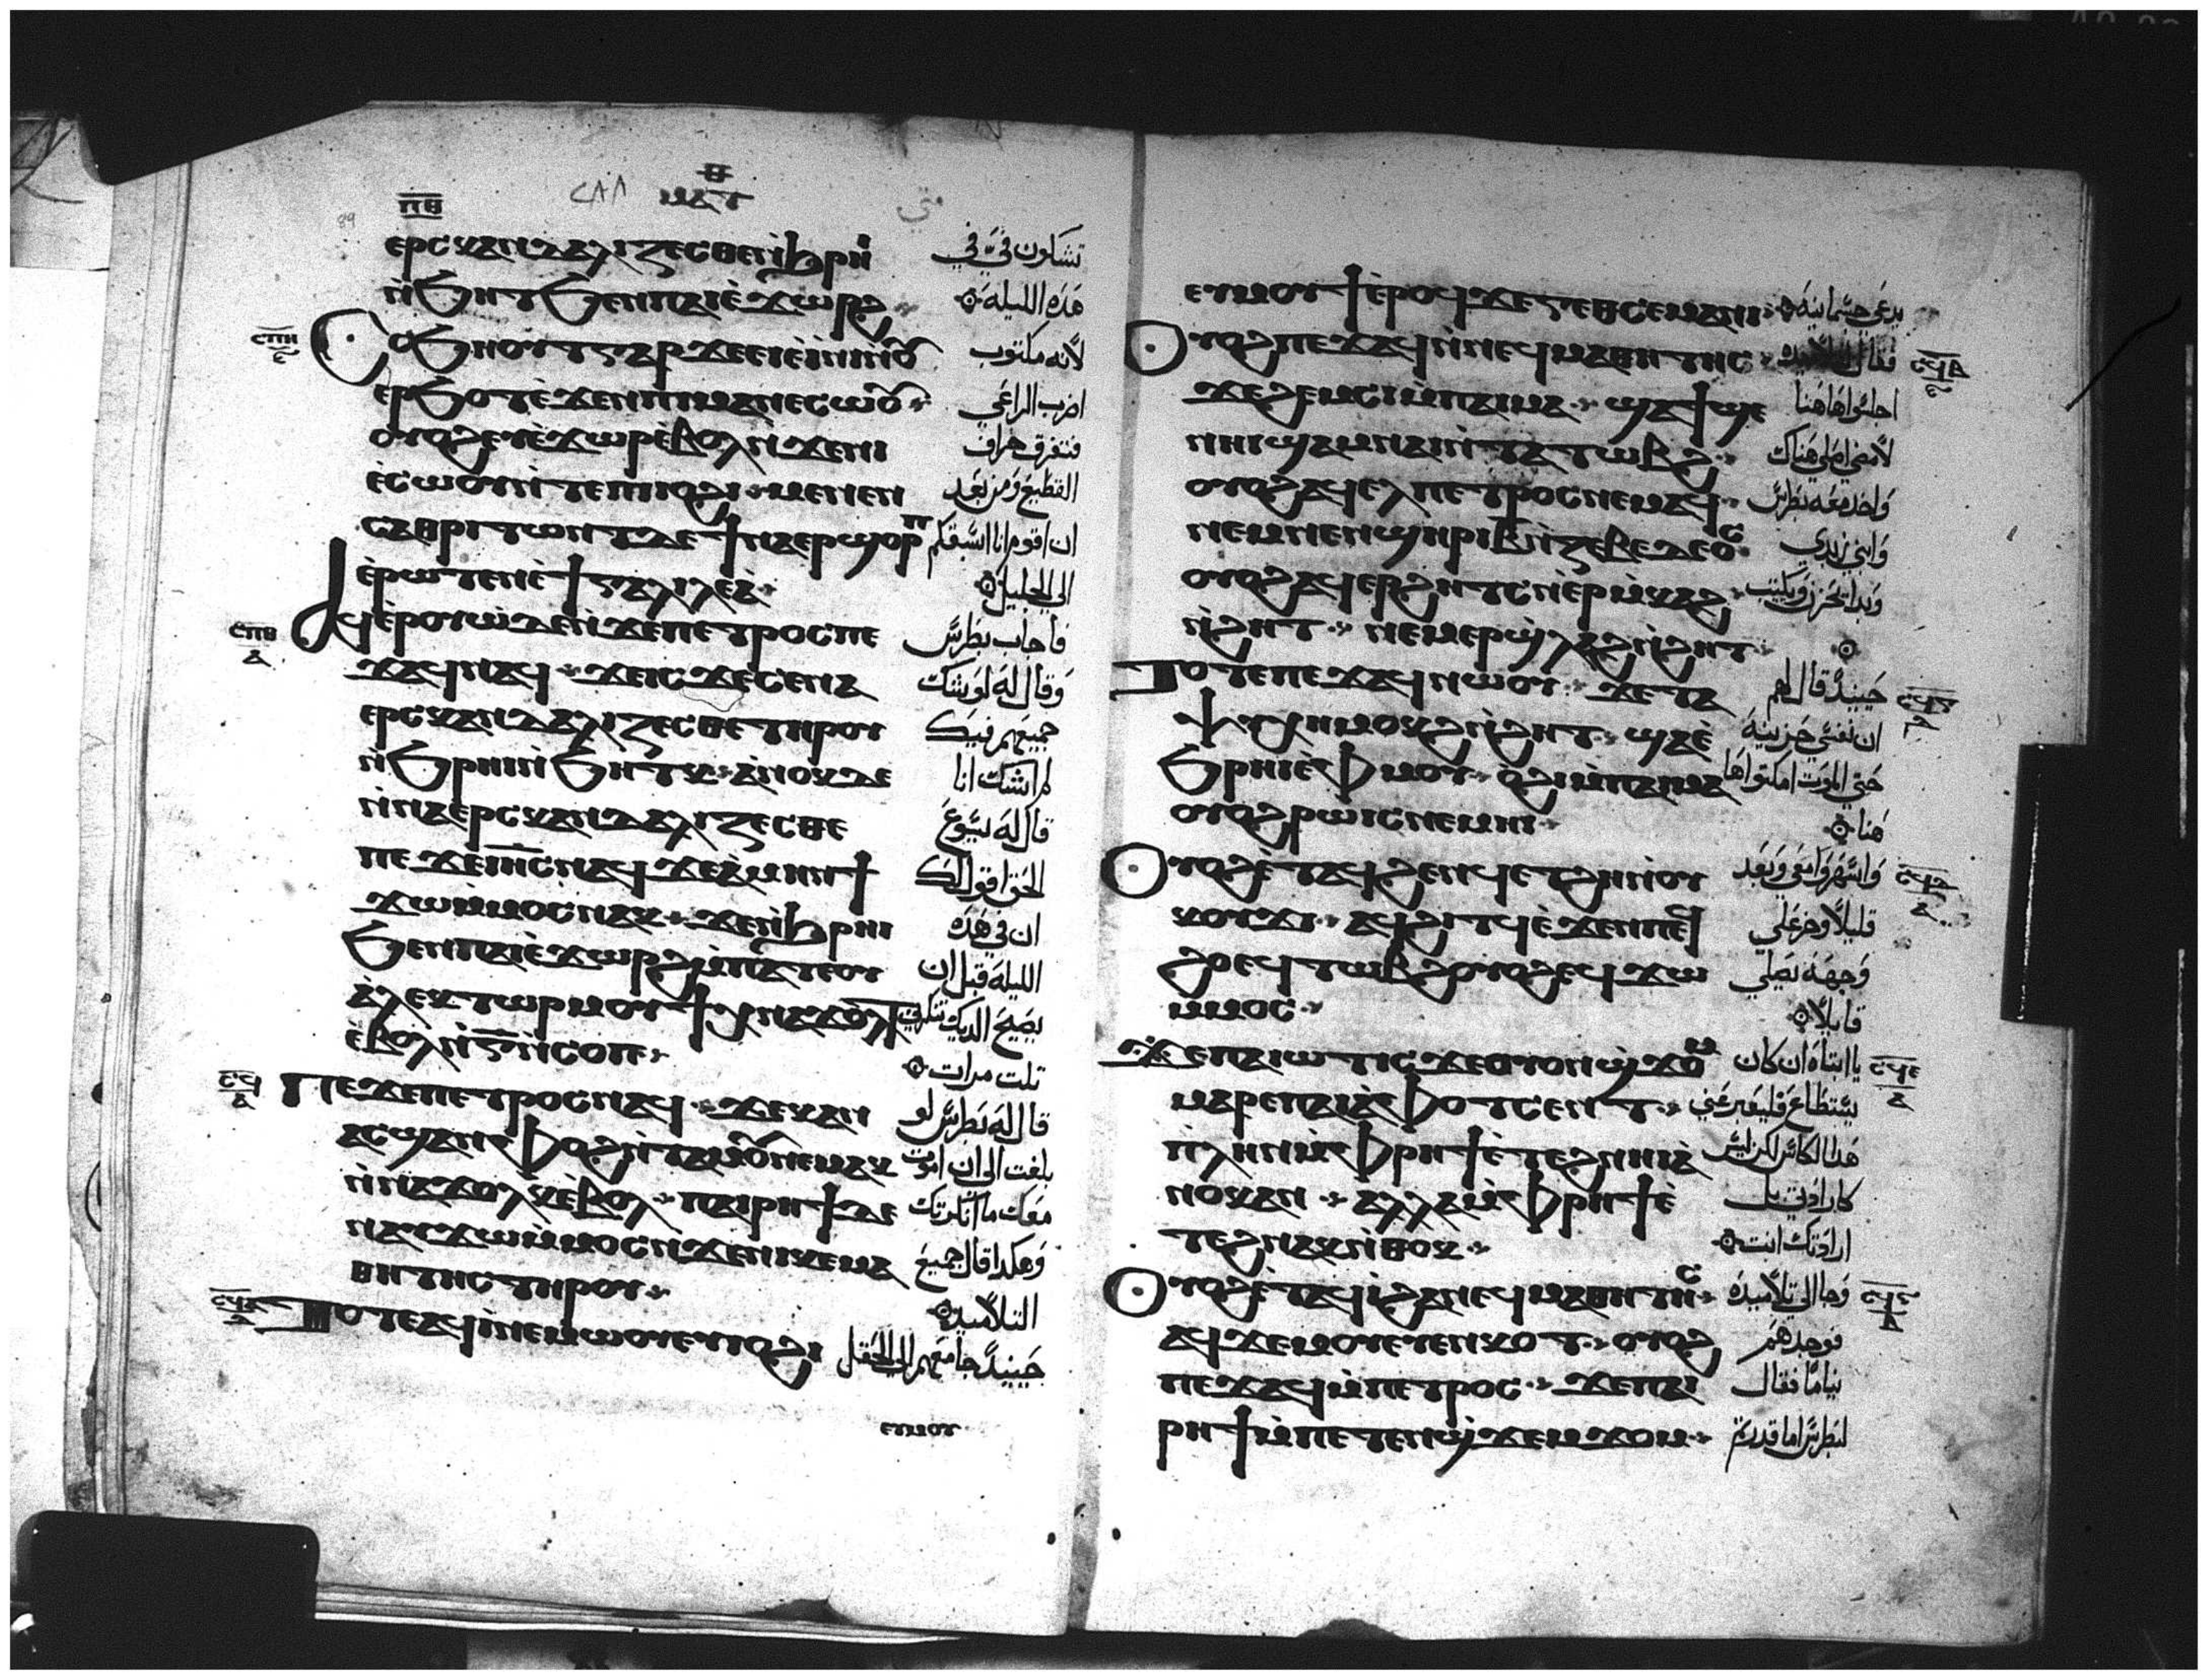 ⲡⲑ ⲙⲁⲧ متي
89
ⲉⲣⲥⲕⲁⲛⲇⲁⲗⲓⲍⲉⲥⲑⲉ ⲛ̀ϧⲣⲏⲓ تشكون فيّ في
ⲛ̀ϧⲏⲧ ϧⲉⲛ ⲡⲁⲓⲉ̀ϫⲱⲣϩ هذه الليلة
ⲥⲡⲏ ⲥ̀ϧⲏⲟⲩⲧ ⲅⲁⲣ ϫⲉ ⲉⲓⲉ̀ⲓ̀ⲛⲓ ⲛ̀ⲟⲩ لانه مكتوب
ⲉⲣϧⲟⲧ ⲉ̀ϫⲉⲛ ⲡⲓⲙⲁⲛⲉⲥⲱⲟⲩ اضرب الراعي
ⲟⲩⲟϩ ⲉⲩⲉ̀ϫⲱⲣ ⲉ̀ⲃⲟⲗ ⲛ̀ϫⲉ ⲛⲓ فتتفرق خراف
ⲉ̀ⲥⲱⲟⲩ ⲛ̀ⲧⲉ ⲡⲓⲟϩⲓ ⲙⲉⲛⲉⲛ القطيع ومن بعد
ⲥⲁ ⲑⲣⲓⲧⲱⲛⲧ ⲇⲉ ϯⲛⲁⲉⲣϣⲟⲣⲡ ان اقوم انا اسبقكم
ⲉ̀ⲣⲱⲧⲉⲛ ⲉ̀ϯⲅⲁⲗⲓⲗⲉⲁ̀ الى الجليل
ⲥⲡⲑ ⲁϥⲉ̀ⲣⲟⲩⲱ̀ ⲇⲉ ⲛ̀ϫⲉ ⲡⲉⲧⲣⲟⲥ ⲡⲉ فاجاب بطرس
ϫⲁϥ ⲛⲁϥ ϫⲉ ⲓⲥϫⲉ ⲥⲉⲛⲁ وقال له لو شك
ⲉⲣⲥⲕⲁⲛⲇⲁⲗⲓⲍⲉⲥⲑⲉ ⲧⲏⲣⲟⲩ جميعهم فيك
ⲛ̀ϧⲣⲏⲓ ⲛ̀ϧⲏⲧⲕ ⲁ̀ⲛⲟⲕ ⲇⲉ لم اشك انا
ⲛ̀ⲛⲁⲉⲣⲥⲕⲁⲛⲇⲁⲗⲓⲍⲉⲥⲑⲉ قال له يسوع
ⲡⲉϫⲉ ⲓⲏⲥ ⲛⲁϥ ϫⲉ ⲁ̀ⲙⲏⲛ ϯ الحق اقول لك
ϫⲱ ⲙ̀ⲙⲟⲥ ⲛⲁⲕ ϫⲉ ⲛ̀ϧⲣⲏⲓ ان في هذه
ϧⲉⲛ ⲡⲁⲓⲉ̀ϫⲱⲣϩ ⲙ̀ⲡⲁⲧⲉ ⲟⲩ الليلة قبل ان
ⲁ̀ⲗⲉⲕⲧⲱⲣ ⲙⲟⲩϯ ⲭⲛⲁϫⲟⲗⲧ يصيح الديك تنكرني
ⲉ̀ⲃⲟⲗ ⲛ̀ⲅ ⲛ̀ⲥⲟⲡ تلت مرات
ⲥϥ ⲡⲉϫⲉ ⲡⲉⲧⲣⲟⲥ ⲛⲁϥ ϫⲉ ⲕⲁⲛ قال له بطرس لو
ⲁⲥϣⲁⲛⲫⲟϩ ⲛ̀ⲧⲁⲙⲟⲩ ⲛⲉⲙⲁⲕ بلغت الى ان اموت
ⲛ̀ⲛⲁϫⲟⲗⲕ ⲉ̀ⲃⲟⲗ ⲡⲁⲓⲣⲏϯ ⲇⲉ معك ما انكرتك
ⲛⲁⲩϫⲱ ⲙ̀ⲙⲟⲥ ⲛ̀ϫⲉ ⲛⲓⲕⲉⲙⲁ وهكدا قال جميع
ⲑⲏⲧⲏⲥ ⲧⲏⲣⲟⲩ التلاميد
ⲥϥⲁ ⲧⲟⲧⲉ ⲁϥⲓ̀ ⲛⲉⲙⲱⲟⲩ ⲉⲩⲓⲟϩⲓ حينيد جا معهم الى الحقل
ⲉⲩⲙⲟⲩ
ⲉⲩⲙⲟⲩϯ ⲉ̀ⲣⲟϥ ϫⲉ ⲅⲉⲑⲥⲉⲙⲁⲛⲓ يدعى جسمانية
ⲟⲩⲟϩ ⲡⲉϫⲁϥ ⲛ̀ⲛⲉϥⲙⲁⲑⲏⲧⲏⲥ فقال لتلاميده
ϫⲉ ϩⲉⲙⲥⲓ ⲙ̀ⲡⲁⲓⲙⲁ ϣⲁϯϣⲉ اجلسوا هاهنا
ⲛⲏⲓ ϣⲁ ⲙⲛⲁⲓ ⲛ̀ⲧⲁⲧⲱⲃϩ لامضي اصلي هناك
ⲟⲩⲟϩ ⲁϥⲉⲗ ⲡⲉⲧⲣⲟⲥ ⲛⲉⲙⲁϥ واخد معه بطرس
ⲛⲉⲙ ⲛⲉⲛϣⲏⲣⲓ ⲃ̅ ⲛ̀ⲍⲉⲃⲉⲇⲉⲟⲥ وابني زبدي
ⲟⲩⲟϩ ⲁϥⲉⲣϩⲏⲧⲥ ⲛ̀ⲉⲣⲙ̀ⲕⲁϩ وبدا يحزن ويكتيب
ⲛ̀ϩⲏⲧ ⲛⲉⲙ ⲉⲣϣ̀ⲗⲁϩ ⲛ̀ϩⲏⲧ
ⲧⲟⲧⲉ ⲡⲉϫⲁϥ ⲛⲱⲟⲩ ϫⲉ ⲧⲁ حينيد قال لهم
ⲯⲩⲭⲏ ⲙⲟⲕϩ ⲛ̀ϩⲏⲧ ϣⲁⲉ̀ ان نفسي حزينة
ϧⲣⲏⲓ ⲉ̀ⲫⲙⲟⲩ ⲟϩⲓ ⲙ̀ⲡⲁⲓⲙⲁ حتى الموت امكتوا ها
ⲟⲩⲟϩ ⲣⲱⲓⲥ ⲛⲉⲙⲏⲓ هنا
ⲟⲩⲟϩ ⲉ̀ⲧⲁϥϩⲉⲛϥ ⲉⲧϩⲏ ⲛ̀ⲟⲩ واسهروا معي وبعد
ⲕⲟⲩϫⲓ ⲁϥϩⲓⲧϥ ⲉ̀ϫⲉⲛ ⲡⲉϥ قليلا وخر على
ϩⲟ ⲉϥⲧⲱⲃϩ ⲟⲩⲟϩ ⲉϥϫⲱ وجهه يصلي
ⲙⲙⲟⲥ قايلا
ⲥϥⲉ ϫⲉ ⲡⲁⲓⲱⲧ ⲓⲥϫⲉ ⲟⲩⲟⲛϣ̀ϫⲟⲙ يا ابتاه ان كان
ⲙⲁⲣⲉ ⲡⲁⲓⲁ̀ⲫⲟⲧ ⲥⲉⲛⲧ يستطاع فليعبر عني
ⲡ̀ⲗⲏⲛ ⲙ̀ⲫⲣⲏϯ ⲉ̀ⲧⲉϩⲛⲏⲓ ⲁ̀ هدا الكاس لكن ليس
ⲛⲟⲕ ⲁⲛ ⲁⲗⲗⲁ ⲙ̀ⲫⲣⲏϯ ⲉ̀ كارادتي بل
ⲧⲉϩⲛⲁⲕ ⲛ̀ⲑⲟⲕ ارادتك انت
ⲟⲩⲟϩ ⲉ̀ⲧⲁϥⲓ̀ ϩⲁ ⲛⲉϥⲙⲁⲑⲏⲧⲏⲥ وجا الى تلاميده
ⲁϥϫⲉⲙⲟⲩ ⲉⲩⲉⲛⲕⲟⲧ ⲟⲩⲟϩ فوجدهم
ⲡⲉϫⲁϥ ⲙ̀ⲡⲉⲧⲣⲟⲥ ϫⲉ ⲡⲁⲓ نياما فقال
ⲣⲏϯ ⲙ̀ⲡⲉⲧⲉⲛϣ̀ϫⲉⲙϫⲟⲙ لبطرس اما قدرتم